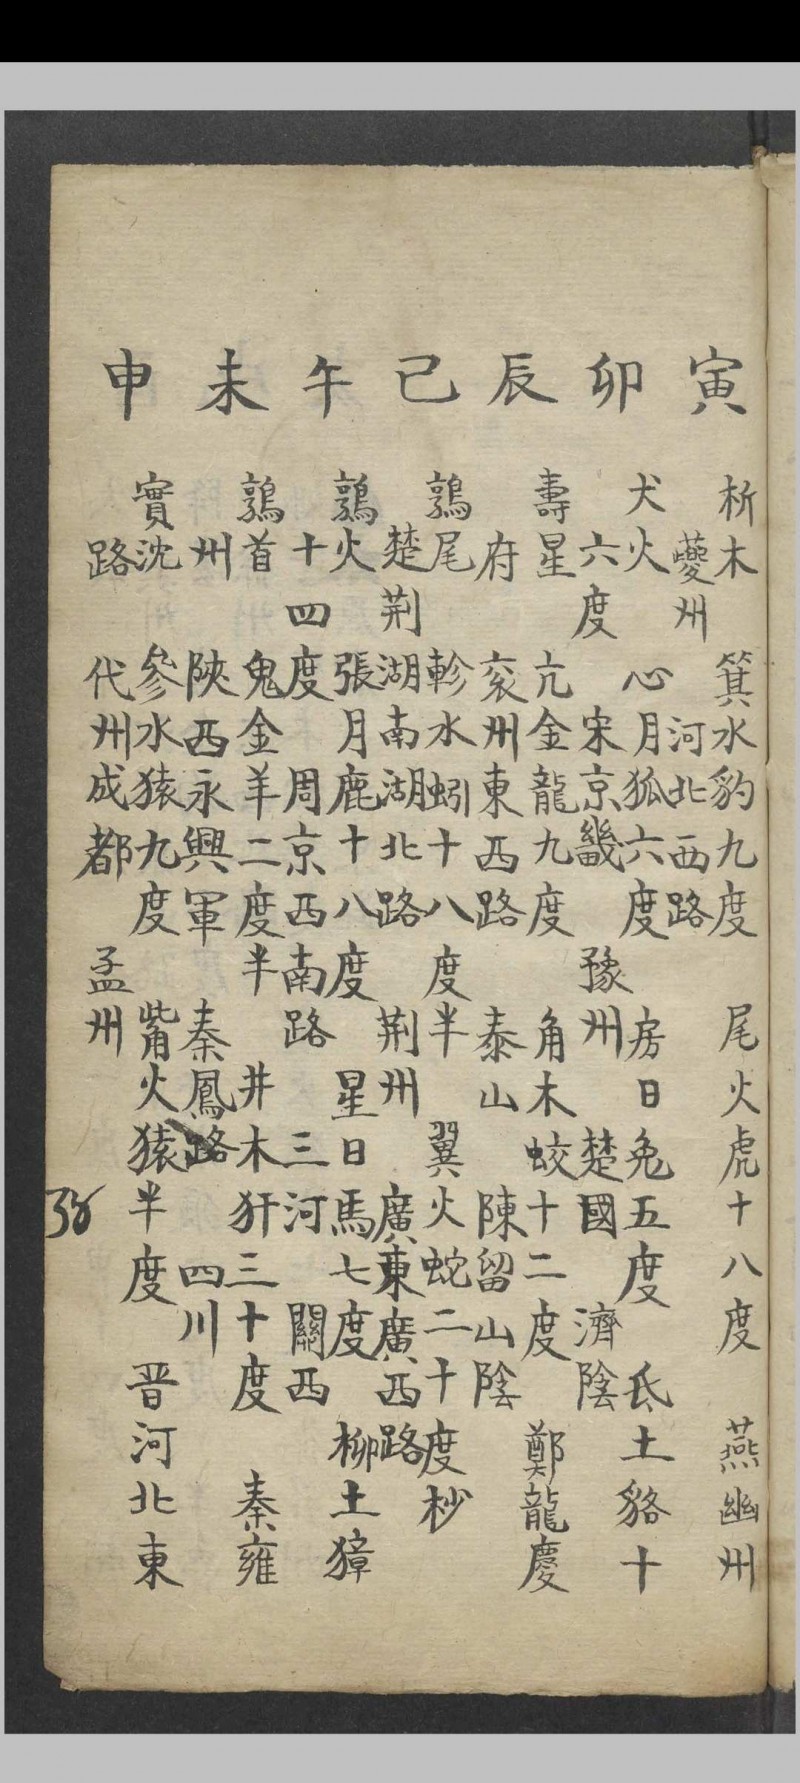 寅 卯 辰 巳 午 未 申
析木 箕水豹九度 尾火虎十八度 燕幽州
夔州 河北西路
犬火 心月狐六度 房日兔五度 氐土貉十
六度 宋京畿 豫州 楚國 濟陰
壽星 亢金龍九度 角木蛟十二度 鄭龍慶
府 兖州東西路 泰山 陳留山陰
鶉尾 軫水蚓十八度半 翼火蛇二十度杪
楚荆 湖南湖北路 荆州 廣東廣西路
鶉火 張月鹿十八度 星日馬七度 柳土獐
十四度 周京西南路 三河 關西
鶉首 鬼金羊二度半 井木犴三十度 秦雍
州 陝西永興軍 秦鳳路 四川
實沈 參水猿九度 觜火猿半度 晋河北東
路 代州成都 孟州
38